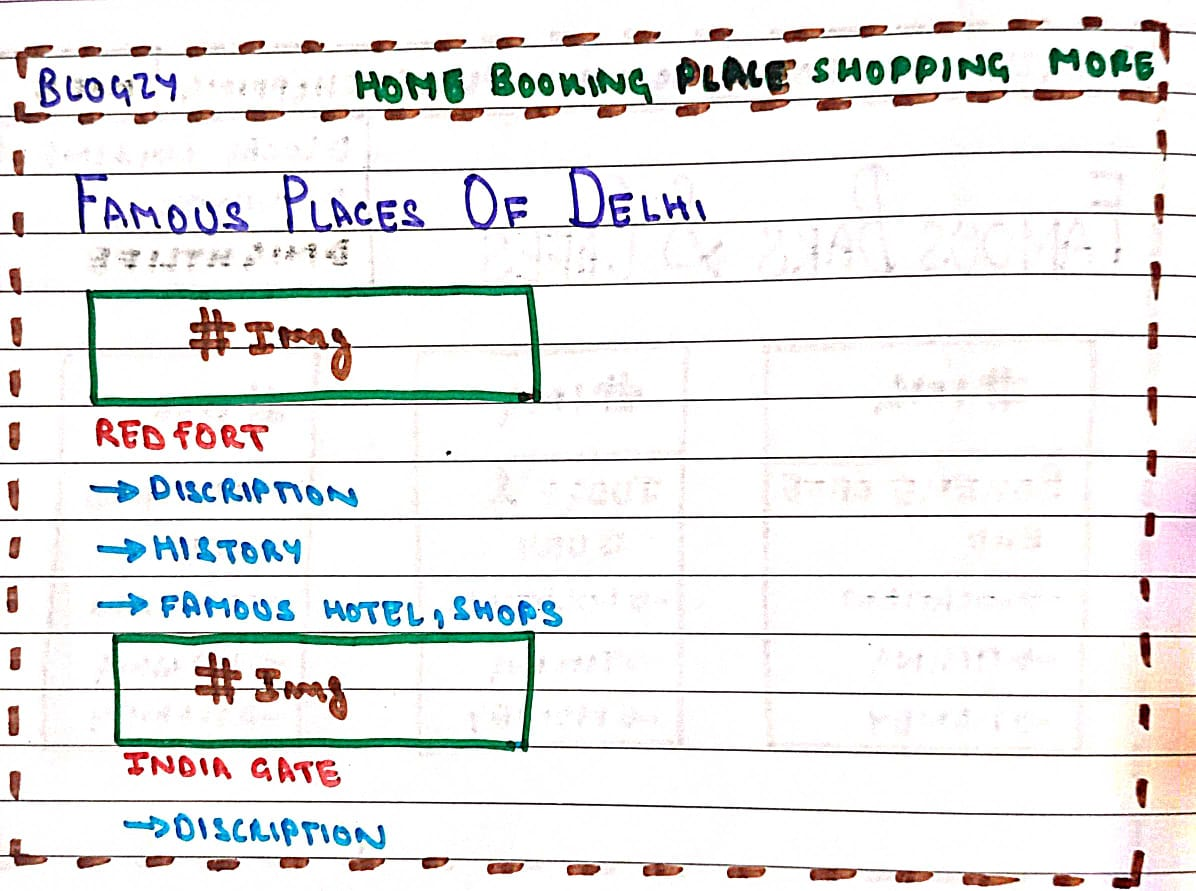 BLOGZY HOME BOOKING PLACE SHOPPING MORE
FAMOUS PLACES OF DELHI
#Img
RED FORT
→ DISCRIPTION
→ HISTORY
→ FAMOUS HOTEL, SHOPS
#Img
INDIA GATE
→ DISCRIPTION